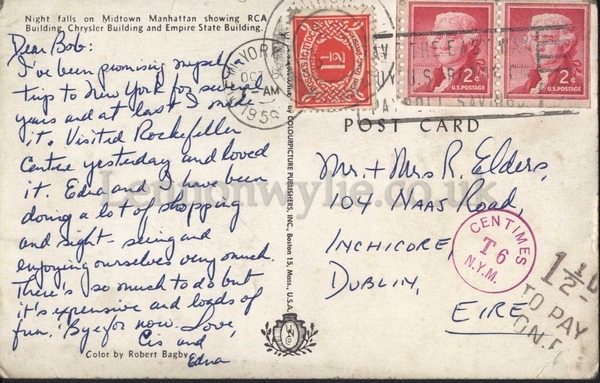 Night falls on Midtown Manhattan showing RCA
Building, Chrysler Building and Empire State Building.
Dear Bob:
I've been promising myself
trip to New York for several
years and at last I made
it. Visited Rockefeller
Centre yesterday and loved
it. Edna and I have been
doing a lot of shopping
and sight-seeing and
enjoying ourselves very much.
There's so much to do but
it's expensive and loads of
fun. 'Bye for now. Love,
Cis and
Edna
Color by Robert Bagby
COLOURPICTURE PUBLISHERS, INC., Boston 15, Mass., U.S.A.
1½
2¢
U.S. POSTAGE
2¢
U.S. POSTAGE
AM
195
POST CARD
Mr. + Mrs R. Elders,
104 Naas Road,
Inchicore,
Dublin,
EIRE
CENTIMES
T 6
N.Y.M.
1½D
TO PAY
Lennonwylie.co.uk